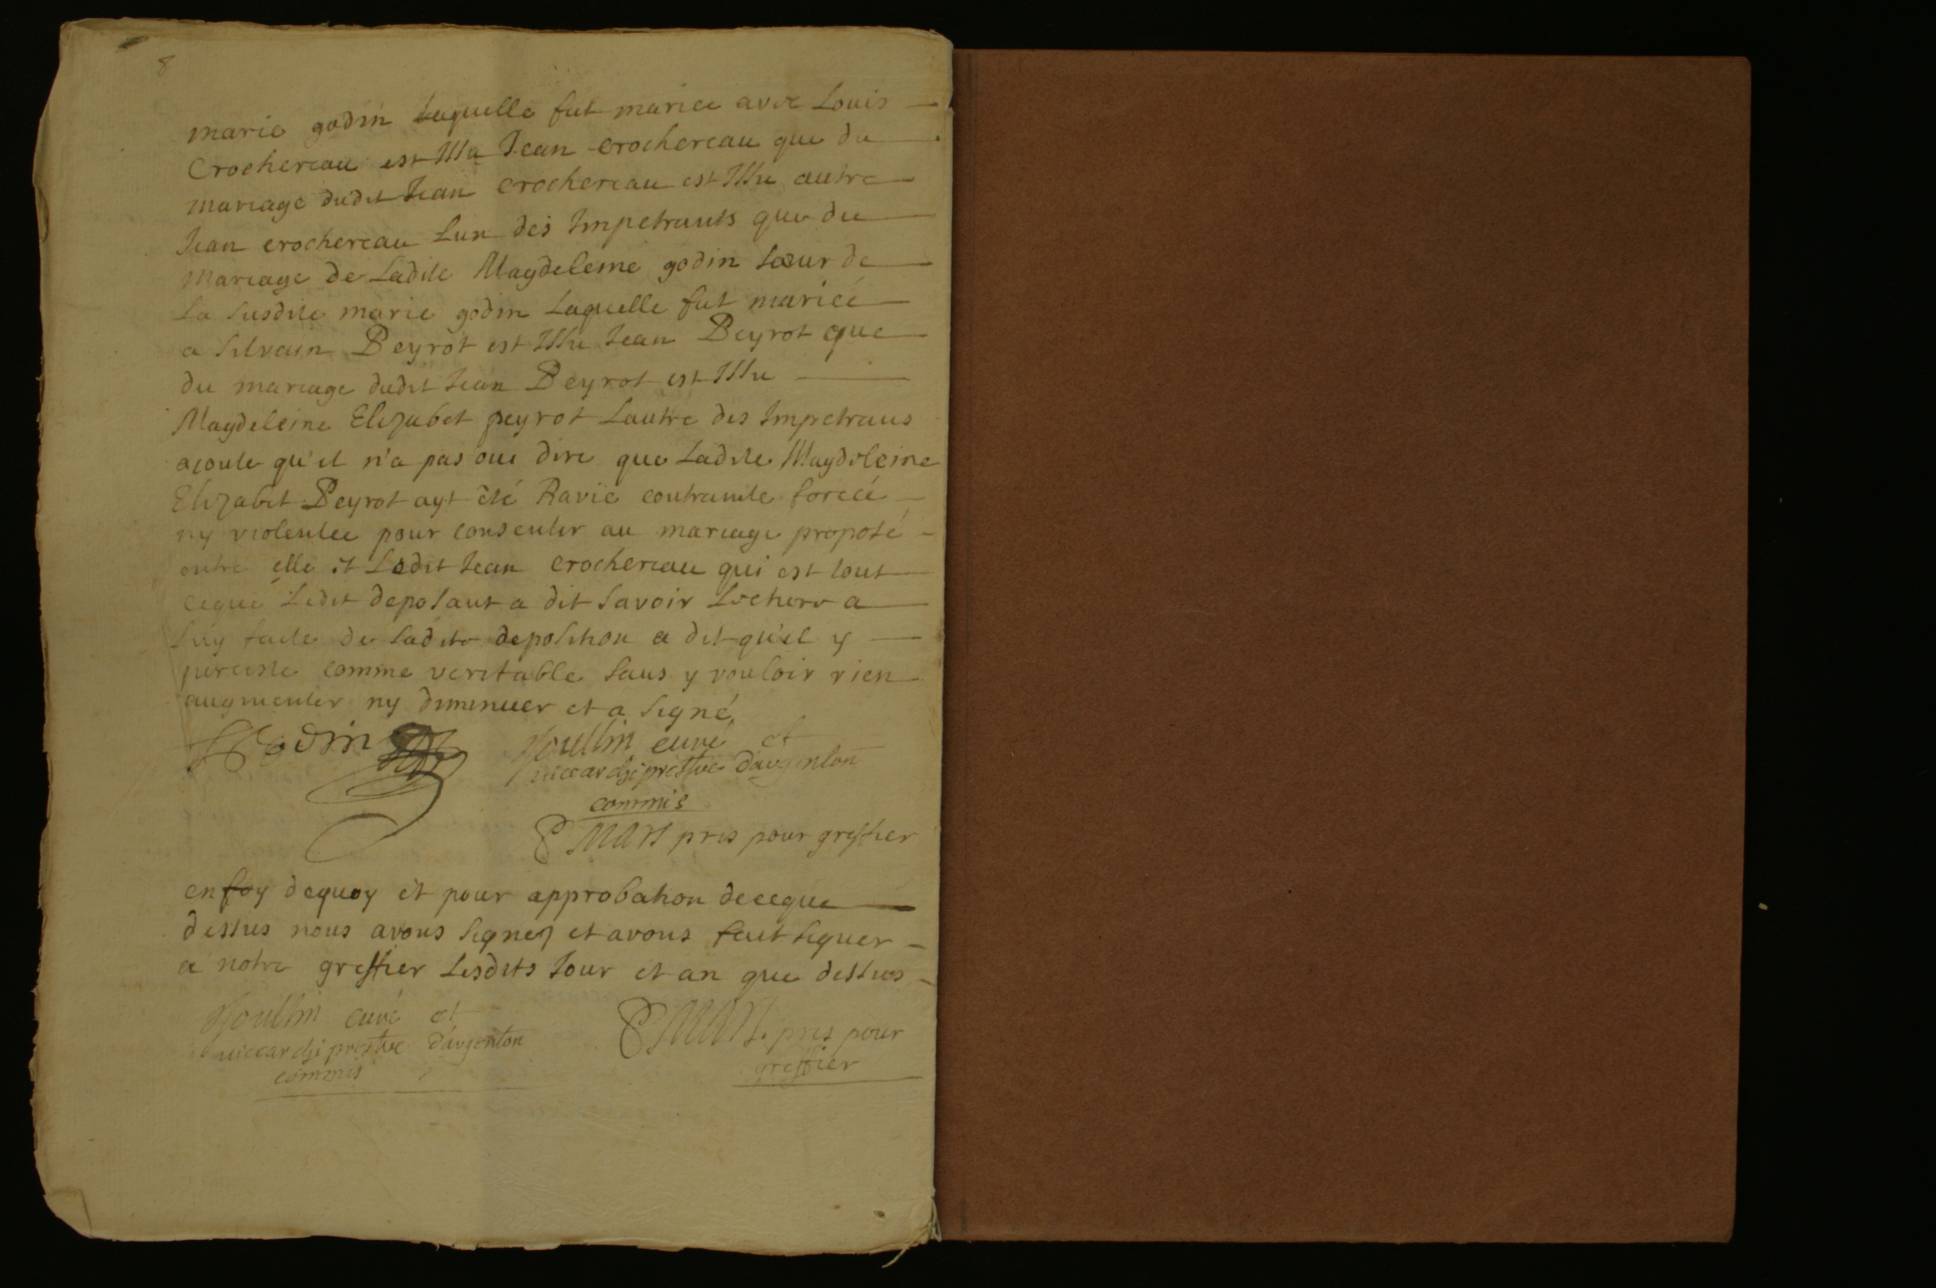 8
marie godin Laquelle fut mariee avec Louis
Crochereau est Issu Jean crochereau que du
mariage dudit Jean crochereau est Issu autre
Jean crochereau Lun des Impetrants que du
mariage de Ladite Magdeleine godin sœur de
La susdite marie godin Laquelle fut mariée
a silvain Peyrot est Issu Jean Peyrot que
du mariage dudit Jean Peyrot est Issu
Magdeleine Elizabet peyrot Lautre des Impetrans
ajoute qu'il n'a pas oui dire que Ladite Magdeleine
Elizabet Peyrot ayt été Ravie contrainte forcée
ny violentee pour consentir au mariage proposé
entre elle et Ledit Jean crochereau qui est tout
ceque Ledit deposant a dit savoir Lecture a
luy faite de Ladite deposition a dit qu'il y
perciste comme veritable sans y vouloir rien
augmenter ny diminuer et a signé
Godin
curé et
vicearchiprestre d'argenton
commis
pris pour greffier
enfoy dequoy et pour approbation deceque
dessus nous avons signez et avons fait signer
a notre greffier Lesdits Jour et an que dessus
curé et
vicearchiprestre d'argenton
commis
pris pour
greffier